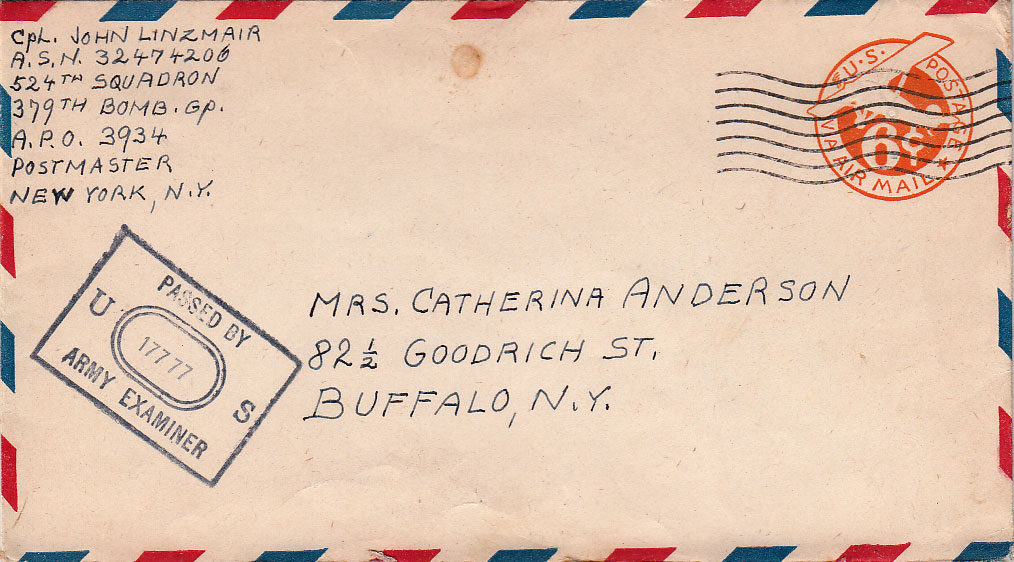 Cpl. JOHN LINZMAIR
A.S.N. 32474206
524TH SQUADRON
379TH BOMB. Gp.
A.P.O. 3934
POSTMASTER
NEW YORK, N.Y.
U.S. POSTAGE
6¢
VIA AIR MAIL
PASSED BY
U 17777 S
ARMY EXAMINER
MRS. CATHERINA ANDERSON
82 1/2 GOODRICH ST.
BUFFALO, N.Y.